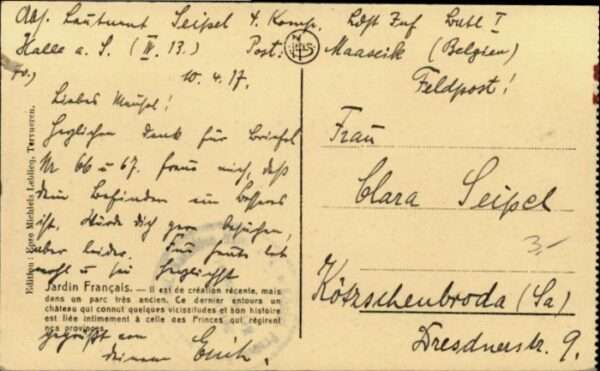 Abs. Leutnant Seipel 4. Komp. Ldst Inf Batl I
Halle a. S. (IV. 13.) Post. Maaseik (Belgien)
Feldpost!
10. 4. 17.
Liebes Mausel!
Herzlichen Dank für Briefel
Nr 66 u 67. freue mich, daß
dein Befinden ein besseres
ist. Würde dich gern besuchen,
aber leider. Für heute leb
wohl u sei herzlichst
gegrüßt von
deinem Erich.
Frau
Clara Seipel
3.-
Kötzschenbroda (Sa)
Dresdnerstr. 9.
Jardin Français. — Il est de création récente, mais
dans un parc très ancien. Ce dernier entoure un
château qui connut quelques vicissitudes et son histoire
est liée intimement à celle des Princes qui régirent
nos provinces.
Edition : Epse Michiels Leblicq, Tervueren.